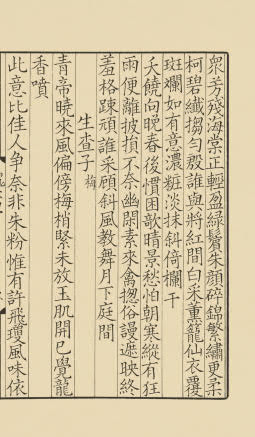 衆芳殘海棠正輕盈綠鬢朱顔碎錦繁繡更柔
柯碧纖搊勻殷誰與將紅間白采薰籠仙衣覆
斑斕如有意濃粧淡抹斜倚欄干
夭饒向晚春後慣困歌晴景愁怕朝寒縱有狂
雨便離披損不奈幽閑素來禽揔俗謾遮映終
羞格踈頑誰采顧斜風教舞月下庭間
生查子 梅
青帝曉來風偏傍梅梢緊未放玉肌開已覺龍
香噴
此意比佳人爭奈非朱粉惟有許飛瓊風味依